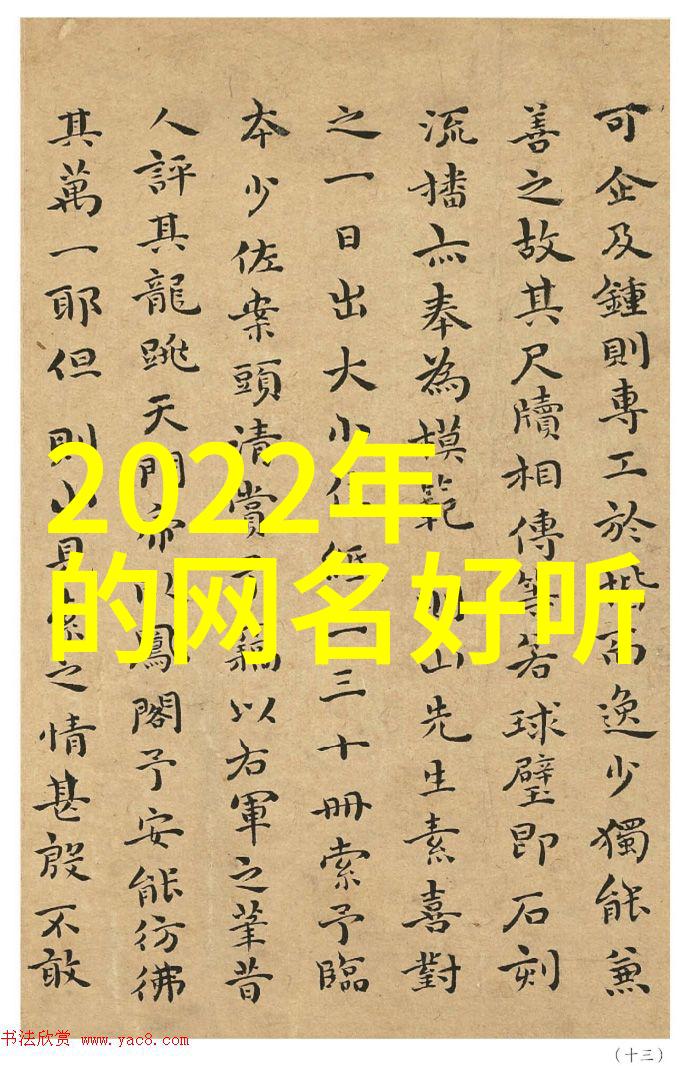 可企及鍾則專工於而逸少獨能兼
善之故其尺牘相傳等若球璧即石刻
流播亦奉為模範山先生素喜對
之一日出大小三十冊索予臨
本少佐案頭清賞予竊以右軍之筆昔
人評其龍跳天門鳳閣予安能彷彿
其萬一耶但見索之情甚殷不敢
2022年
的网名好听
书法欣赏 www.yac8.com
（十三）